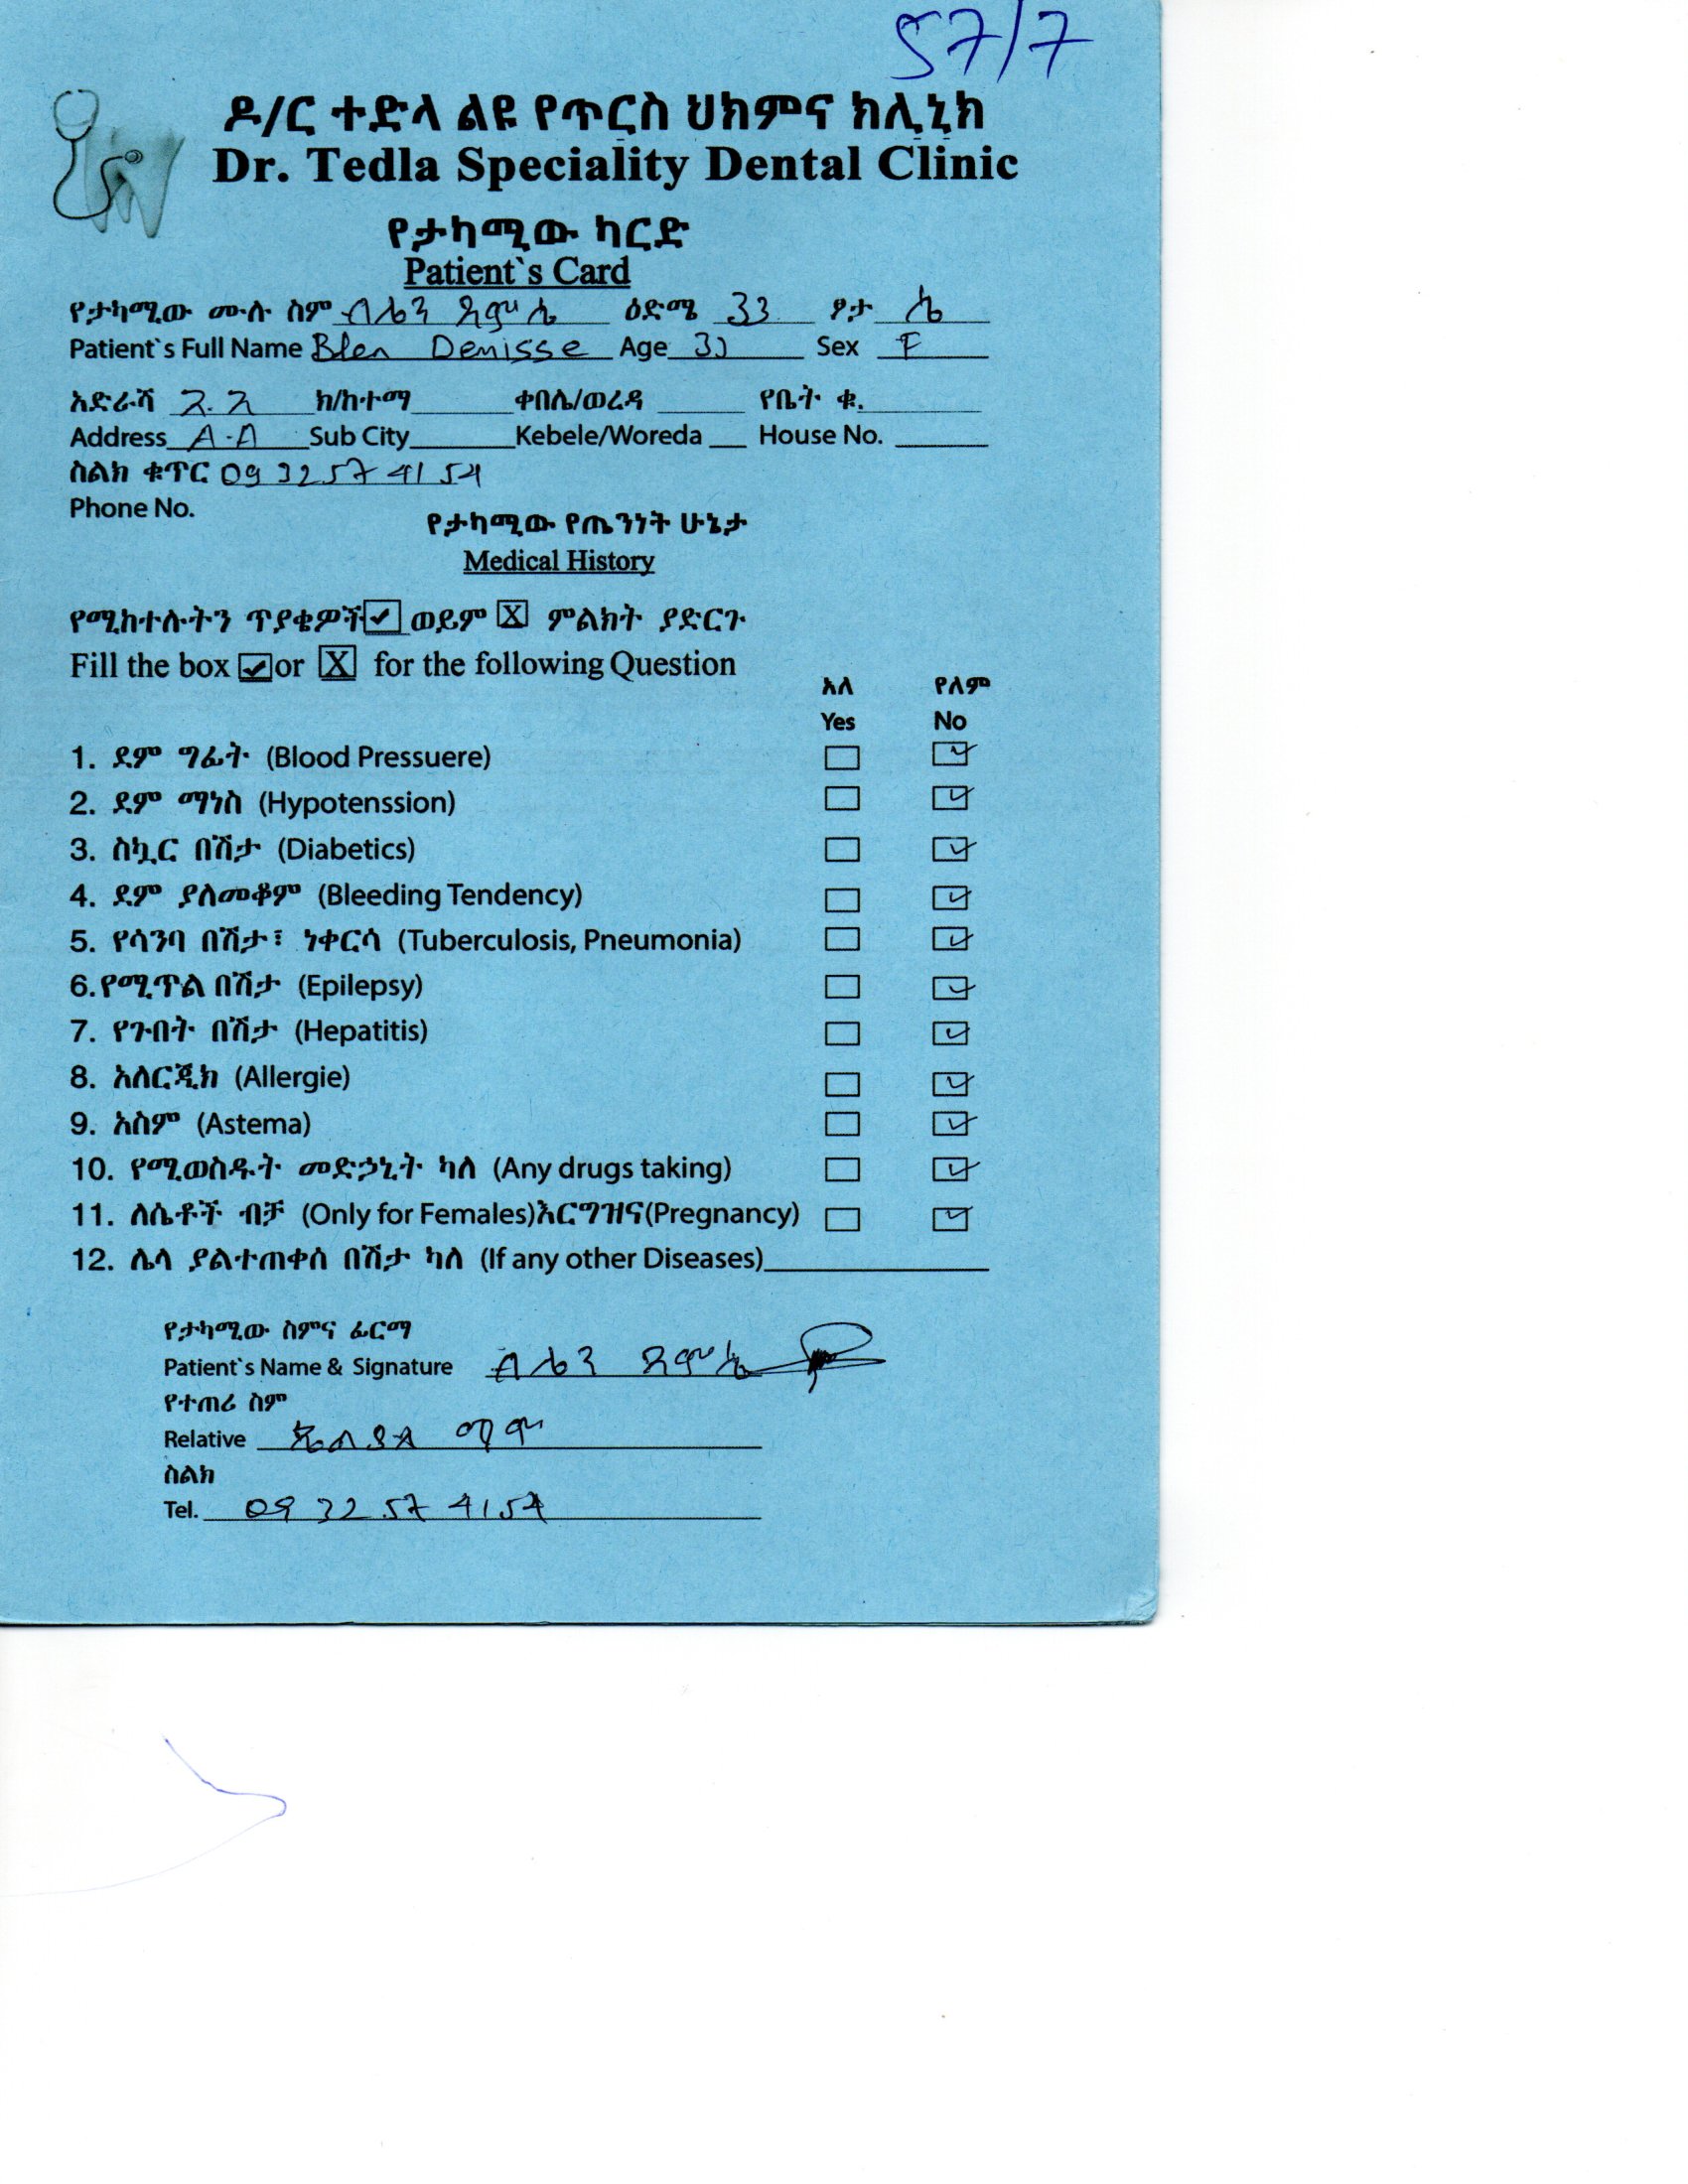 57/7
ዶ/ር ተድላ ልዩ የጥርስ ህክምና ክሊኒክ
Dr. Tedla Speciality Dental Clinic
የታካሚው ካርድ
Patient`s Card
የታካሚው ሙሉ ስም ብሌን ደምሴ ዕድሜ 33 ፆታ ሴ
Patient`s Full Name Blen Demisse Age 33 Sex F
አድራሻ አ.አ ክ/ከተማ ቀበሌ/ወረዳ የቤት ቁ.
Address A.A Sub City Kebele/Woreda House No.
ስልክ ቁጥር 0932574154
Phone No.
የታካሚው የጤንነት ሁኔታ
Medical History
የሚከተሉትን ጥያቄዎች ✓ ወይም X ምልክት ያድርጉ
Fill the box ✓ or X for the following Question
አለ የለም
Yes No
1. ደም ግፊት (Blood Pressuere) ☐ ✓
2. ደም ማነስ (Hypotenssion) ☐ ✓
3. ስኳር በሽታ (Diabetics) ☐ ✓
4. ደም ያለመቆም (Bleeding Tendency) ☐ ✓
5. የሳንባ በሽታ፣ ነቀርሳ (Tuberculosis, Pneumonia) ☐ ✓
6.የሚጥል በሽታ (Epilepsy) ☐ ✓
7. የጉበት በሽታ (Hepatitis) ☐ ✓
8. አለርጂክ (Allergie) ☐ ✓
9. አስም (Astema) ☐ ✓
10. የሚወስዱት መድኃኒት ካለ (Any drugs taking) ☐ ✓
11. ለሴቶች ብቻ (Only for Females)እርግዝና(Pregnancy) ☐ ✓
12. ሌላ ያልተጠቀሰ በሽታ ካለ (If any other Diseases)
የታካሚው ስምና ፊርማ
Patient`s Name & Signature ብሌን ደምሴ
የተጠሪ ስም
Relative ማሞ
ስልክ
Tel. 0932574154